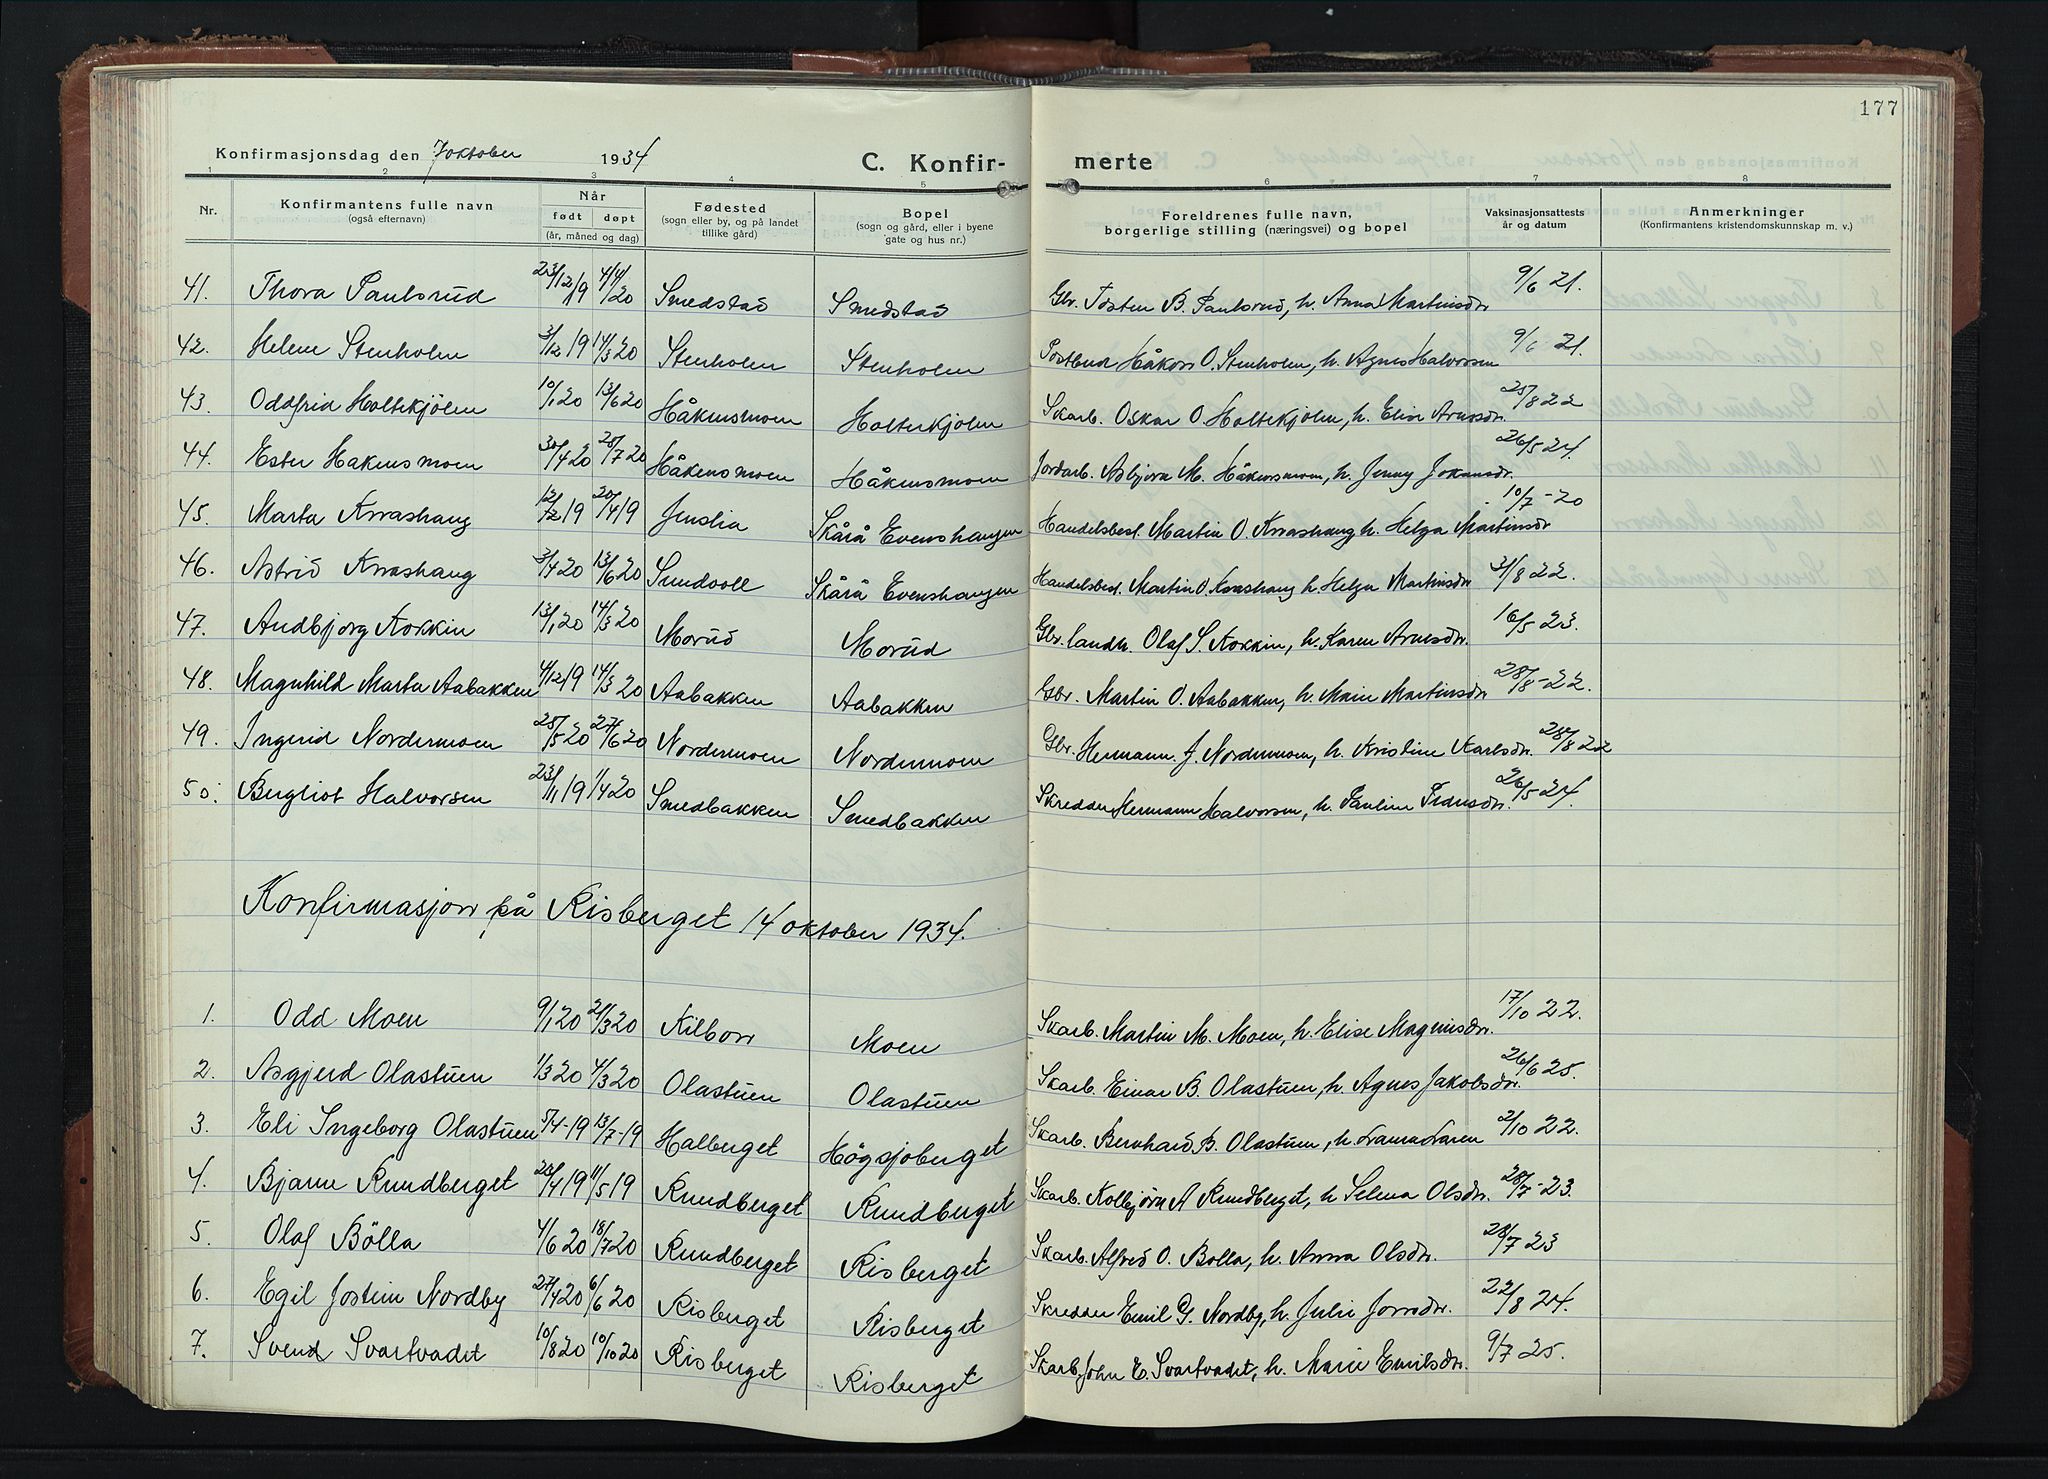 177
Konfirmasjonsdag den 7 oktober 1934 C. Konfir- merte
1 2 3 4 5 6 7 8
Nr. Konfirmantens fulle navn (også efternavn) Når født døpt (år, måned og dag) Fødested (sogn eller by, og på landet tillike gård) Bopel (sogn og gård, eller i byene gate og hus nr.) Foreldrenes fulle navn, borgerlige stilling (næringsvei) og bopel Vaksinasjonsattests år og datum Anmerkninger (Konfirmantens kristendomskunnskap m. v.)
41. Thora Paulsrud 23/12 19 4/4 20 Smedstad Smedstad Gbr. Tosten B. Paulsrud, h. Anna Martinsdr 9/6 21.
42. Helene Stenholen 3/12 19 14/3 20 Stenholen Stenholen Postbud Håkon O. Stenholen, h. Agnes Halvorsen 9/6 21.
43. Oddfrid Holtekjölen 10/1 20 13/6 20 Håkensmoen Holtekjölen Skarb. Oskar O. Holtekjölen, h. Elise Arnesdr. 25/8 22
44. Ester Hakensmoen 30/4 20 25/7 20 Håkensmoen Håkensmoen Jordarb. Asbjørn M. Håkensmoen, h. Jenny Johansdr. 26/5 24.
45. Marta Kvashaug 12/2 19 20/4 19 Skårå Evenshaugen Handelsbest. Martin O. Kvashaug h. Helga Martinsdr 10/7-20
46. Astrid Kvashaug 3/4 20 13/6 20 Sundvoll Skårå Evenshaugen Handelsbest. Martin O. Kvashaug h. Helga Martinsdr 31/8 22.
47. Audbjorg Kokkin 13/1 20 14/3 20 Morud Morud Gbr. landh. Olaf S. Kokkin, h. Karen Arnesdr. 16/5 23.
48. Magnhild Marta Aabakken 4/12 19 14/3 20 Aabakken Aabakken Gbr. Martin O. Aabakken, h. Marie Martinsdr 28/8-22.
49. Ingerid Nordermoen 25/5 20 27/6 20 Nordermoen Nordermoen Gbr. Hermann J. Nordermoen, h. Kristine Karlsdr. 28/8 22
50. Bergliot Halvorsen 23/11 19 1/4 20 Smedbakken Smedbakken Skredder Hermann Halvorsen, h. Pauline Pedersdr. 26/5 24.
Konfirmasjon på Risberget 14 oktober 1934.
1. Odd Moen 9/1 20 21/3 20 Kilbon Moen Skarb. Martin M. Moen, h. Elise Magnusdr. 17/10 22.
2. Asgjerd Olastuen 1/3 20 4/3 20 Olastuen Olastuen Skarb. Einar B. Olastuen, h. Agnes Jakobsdr. 26/6 25.
3. Eli Ingeborg Olastuen 5/4-19 13/7-19 Halberget Högsjöberget Skarb. Bernhard B. Olastuen, h. Larsen 2/10 22.
4. Bjarne Rundberget 20/4 19 11/5 19 Rundberget Rundberget Skarb. Kolbjörn A Rundberget, h Selma Olsdr. 28/7-23.
5. Olaf Bölla 4/6 20 18/7 20 Rundberget Risberget Skarb. Alfred O. Bolla, h. Anna Olsdr. 28/7 23
6. Egil Jostein Nordby 27/4 20 6/6 20 Risberget Risberget Skredder Emil G. Nordby, h. Julie Jonsdr. 22/8 24.
7. Svend Svartvadet 10/8 20 10/10 20 Risberget Risberget Skarb. John E. Svartvadet, h. Marie Emilsdr. 9/7 25.